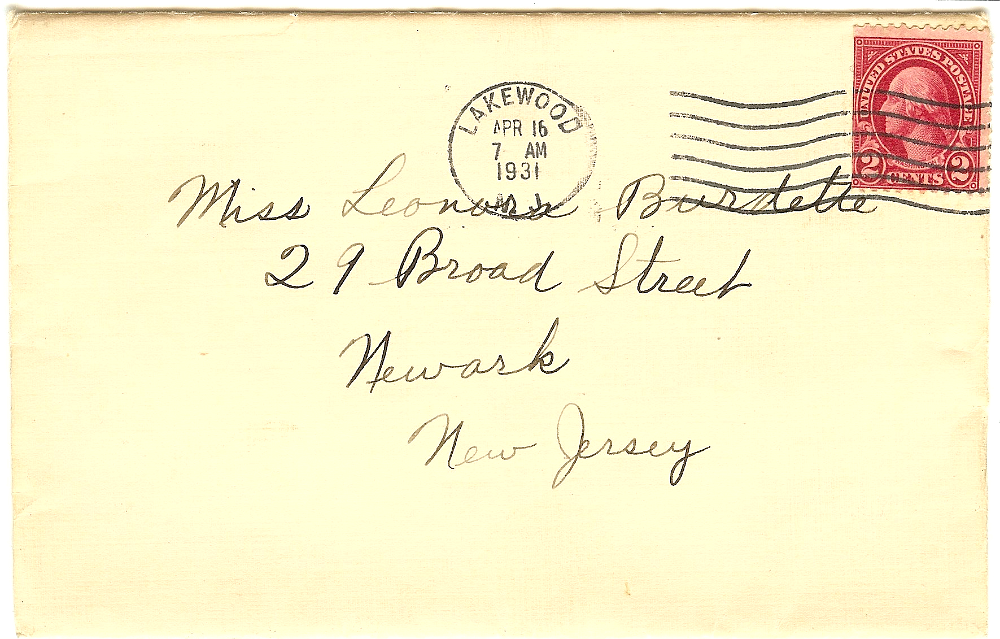 UNITED STATES POSTAGE
2 CENTS 2
LAKEWOOD
APR 16
7 AM
1931
N.J.
Miss Leonora Burdette
29 Broad Street
Newark
New Jersey